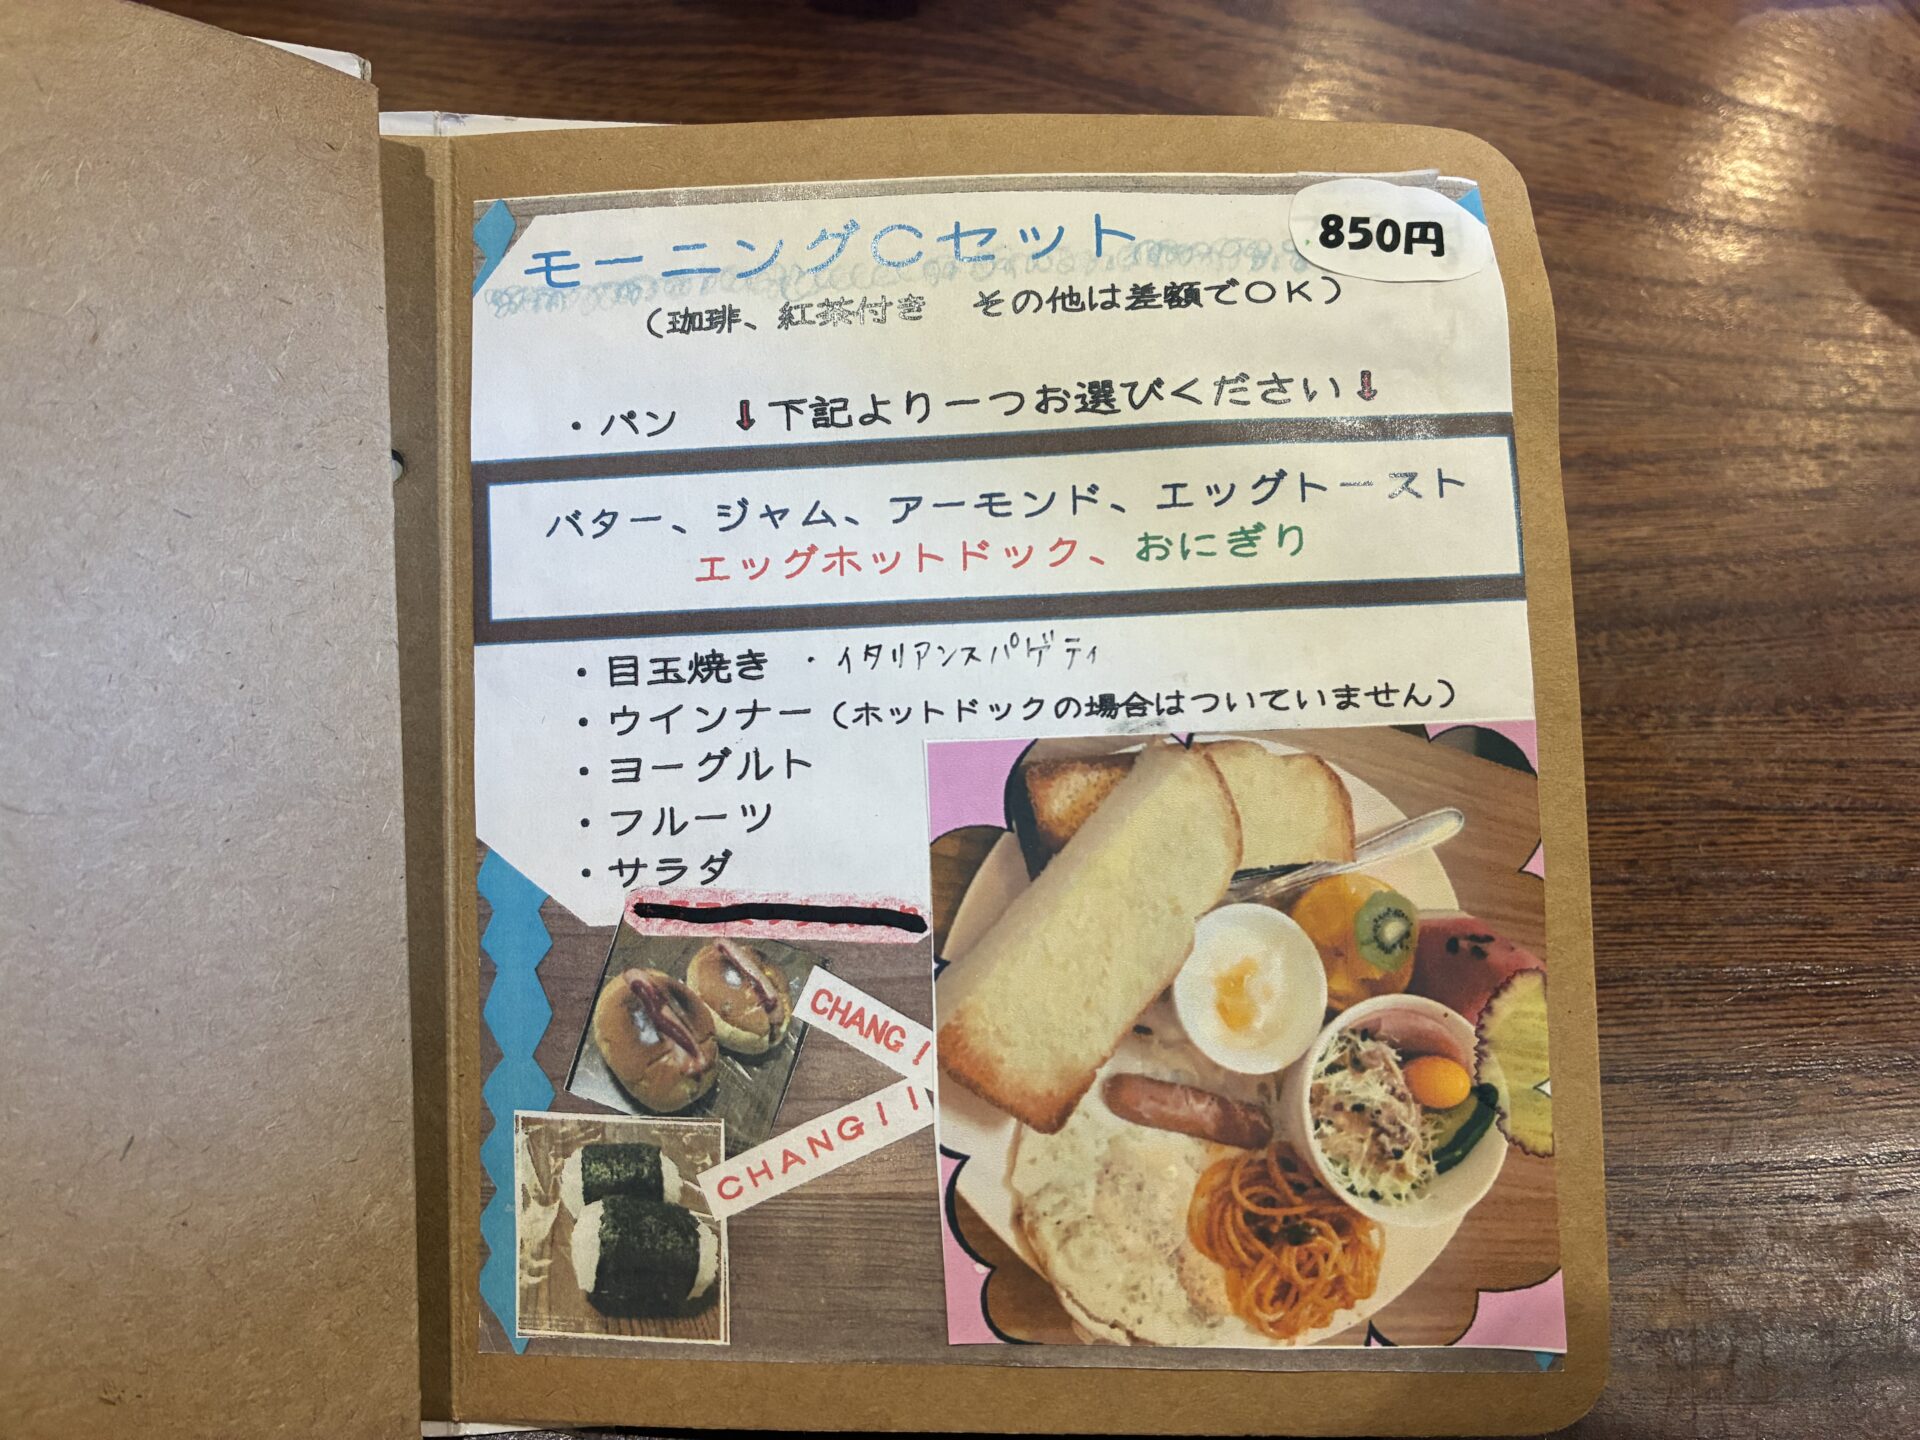 モーニングCセット
850円
(珈琲、紅茶付き　その他は差額でOK)
・パン　⬇下記より一つお選びください⬇
バター、ジャム、アーモンド、エッグトースト
エッグホットドック、おにぎり
・目玉焼き　・イタリアンスパゲティ
・ウインナー(ホットドックの場合はついていません)
・ヨーグルト
・フルーツ
・サラダ
CHANG!
CHANG!!